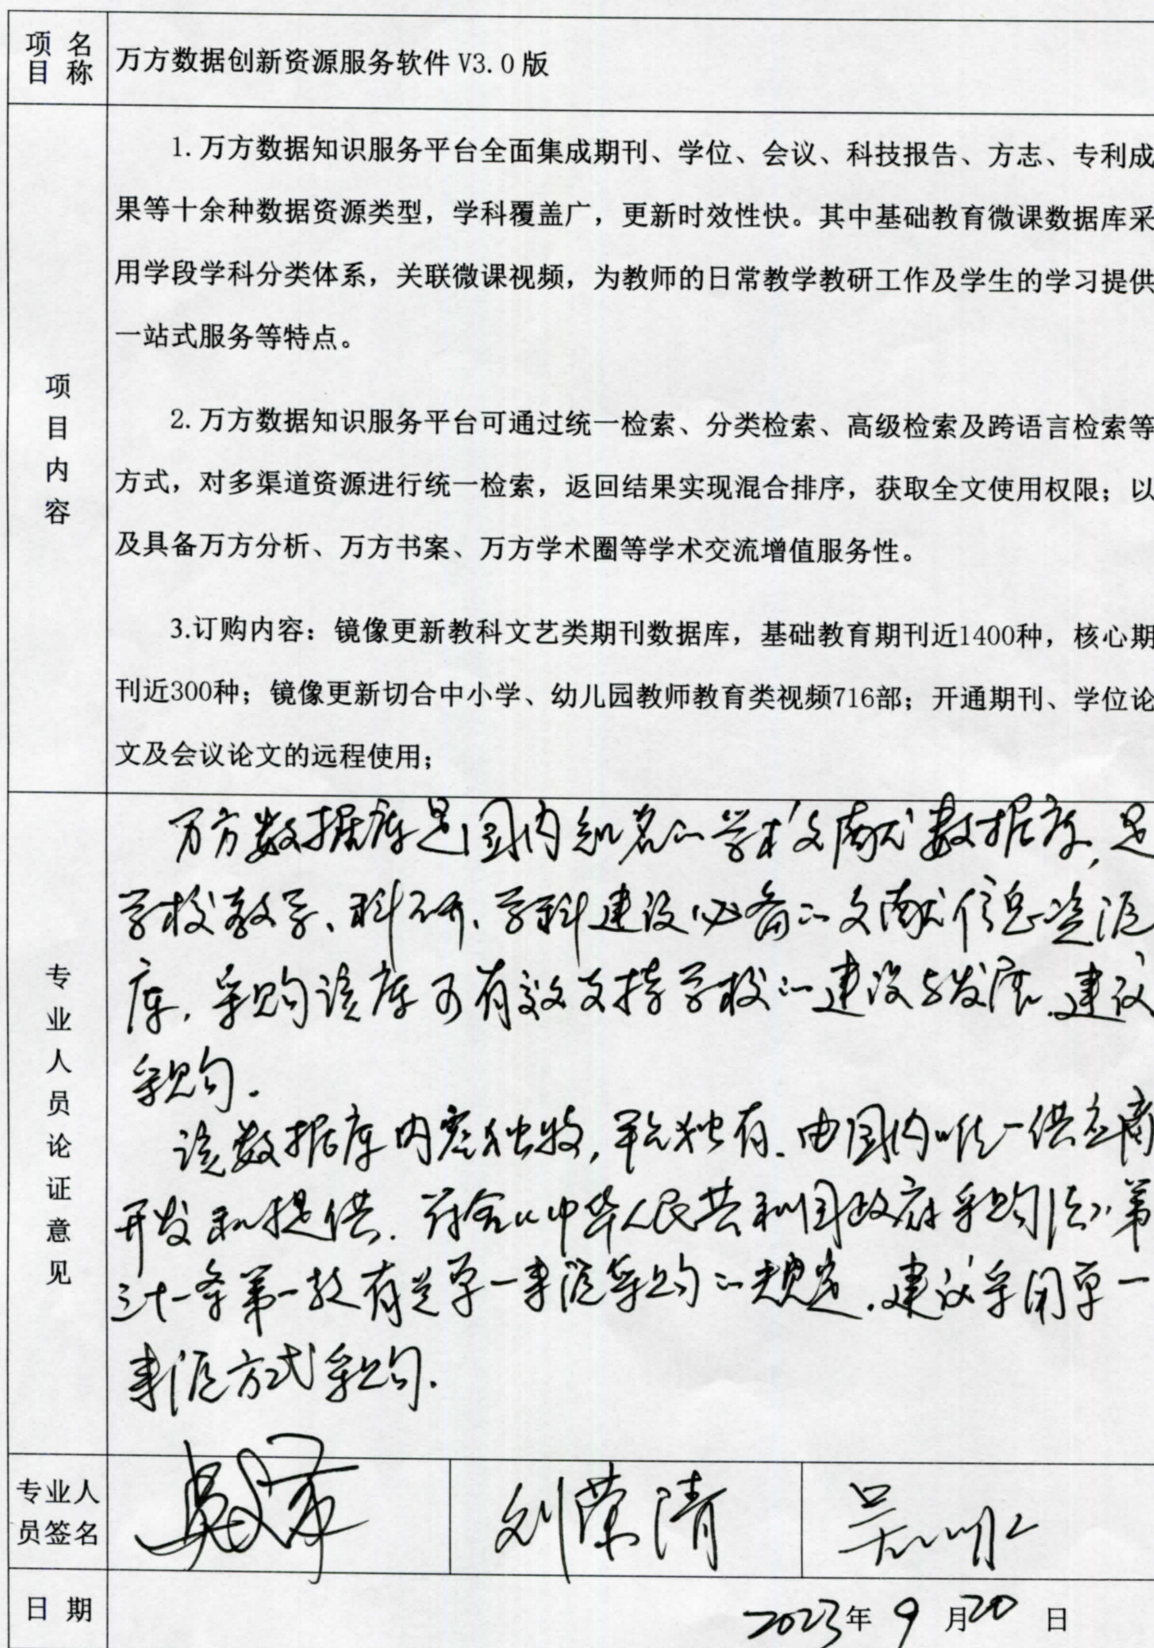 项目名称 万方数据创新资源服务软件 V3.0 版
项目内容
1. 万方数据知识服务平台全面集成期刊、学位、会议、科技报告、方志、专利成
果等十余种数据资源类型，学科覆盖广，更新时效性快。其中基础教育微课数据库采
用学段学科分类体系，关联微课视频，为教师的日常教学教研工作及学生的学习提供
一站式服务等特点。
2. 万方数据知识服务平台可通过统一检索、分类检索、高级检索及跨语言检索等
方式，对多渠道资源进行统一检索，返回结果实现混合排序，获取全文使用权限；以
及具备万方分析、万方书案、万方学术圈等学术交流增值服务性。
3.订购内容：镜像更新教科文艺类期刊数据库，基础教育期刊近1400种，核心期
刊近300种；镜像更新切合中小学、幼儿园教师教育类视频716部；开通期刊、学位论
文及会议论文的远程使用；
专业人员论证意见
万方数据库是国内知名的学术文献数据库，是
学校教学、科研、学科建设必备的文献信息资源
库，采购该库可有效支持学校的建设与发展。建议
采购。
该数据库内容独特，单元独有。由国内唯一供应商
开发和提供。符合《中华人民共和国政府采购法》第
三十一条第一款有关单一来源采购的规定，建议采用单一
来源方式采购。
专业人员签名 刘荣清 吴
日期 2023年 9 月20 日